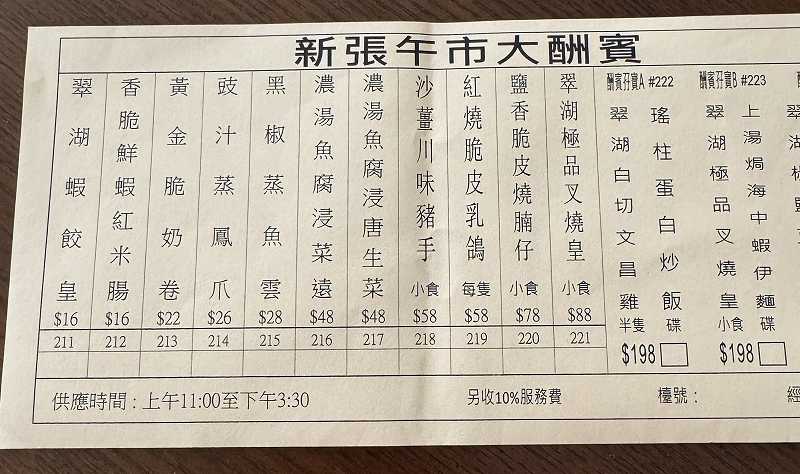 新張午市大酬賓
翠湖蝦餃皇 $16 211
香脆鮮蝦紅米腸 $16 212
黃金脆奶卷 $22 213
豉汁蒸鳳爪 $26 214
黑椒蒸魚雲 $28 215
濃湯魚腐浸菜遠 $48 216
濃湯魚腐浸唐生菜 $48 217
沙薑川味豬手 小食 $58 218
紅燒脆皮乳鴿 每隻 $58 219
鹽香脆皮燒腩仔 小食 $78 220
翠湖極品叉燒皇 小食 $88 221
酬賓孖寶A #222
瑤柱蛋白炒飯 碟
翠湖白切文昌雞 半隻
$198
酬賓孖寶B #223
上湯焗海中蝦伊麵 碟
翠湖極品叉燒皇 小食
$198
供應時間 : 上午11:00至下午3:30
另收10%服務費
檯號 :
經